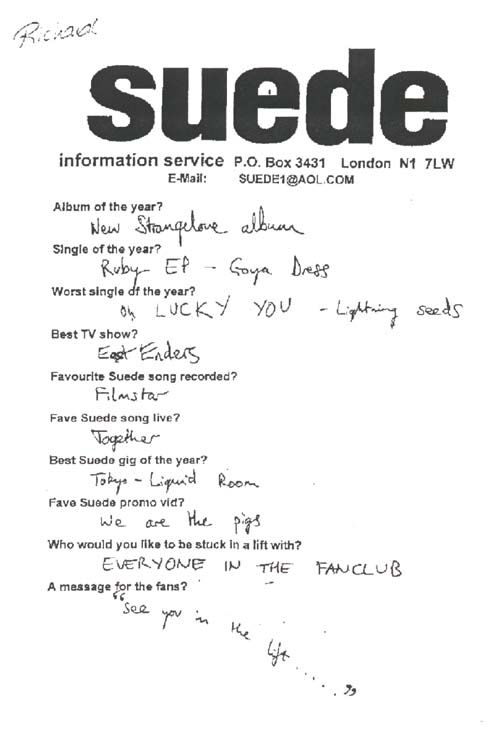 Richard
suede
information service P.O. Box 3431 London N1 7LW
E-Mail: SUEDE1@AOL.COM
Album of the year?
New Strangelove album
Single of the year?
Ruby EP - Goya Dress
Worst single of the year?
Oh LUCKY YOU - Lightning seeds
Best TV show?
East Enders
Favourite Suede song recorded?
Filmstar
Fave Suede song live?
Together
Best Suede gig of the year?
Tokyo - Liquid Room
Fave Suede promo vid?
We are the pigs
Who would you like to be stuck in a lift with?
EVERYONE IN THE FANCLUB
A message for the fans?
"See you in the lift......"